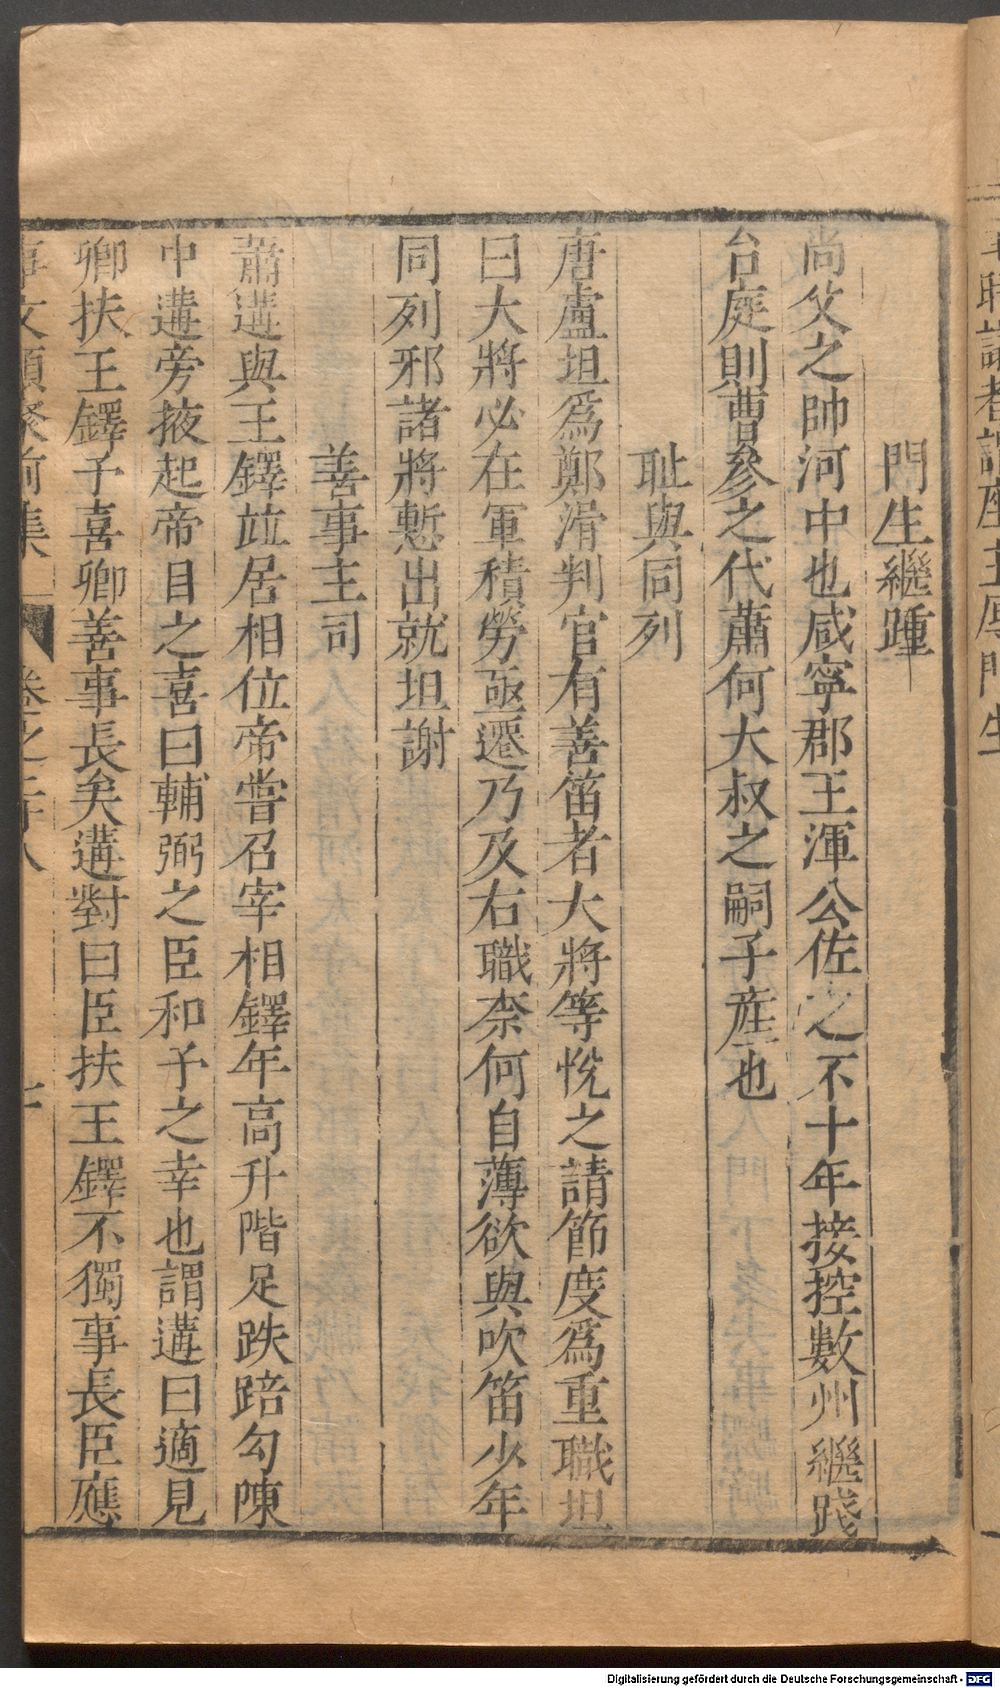 門生繼踵
尚父之帥河中也咸寧郡王渾公佐之不十年接控數州繼踐
台庭則曹參之代蕭何大叔之嗣子産也
耻與同列
唐盧坦爲鄭滑判官有善笛者大將等悅之請節度爲重職坦
曰大將必在軍積勞亟遷乃及右職柰何自薄欲與吹笛少年
同列邪諸將慙出就坦謝
善事主司
蕭遘與王鐸竝居相位帝嘗召宰相鐸年高升階足跌踣勾陳
中遘旁掖起帝目之喜曰輔弼之臣和予之幸也謂遘曰適見
卿扶王鐸予喜卿善事長矣遘對曰臣扶王鐸不獨事長臣應
事文類聚前集 卷之二十八
Digitalisierung gefördert durch die Deutsche Forschungsgemeinschaft - DFG